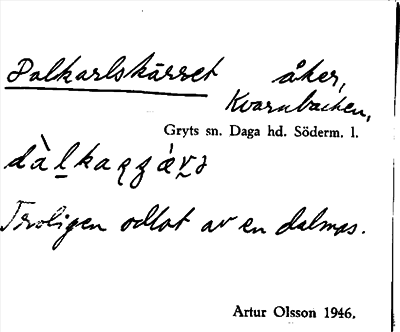 Dalkarlskärret åker,
Kvarnbacken,
Gryts sn. Daga hd. Söderm. l.
Troligen odlat av en dalmas.
Artur Olsson 1946.